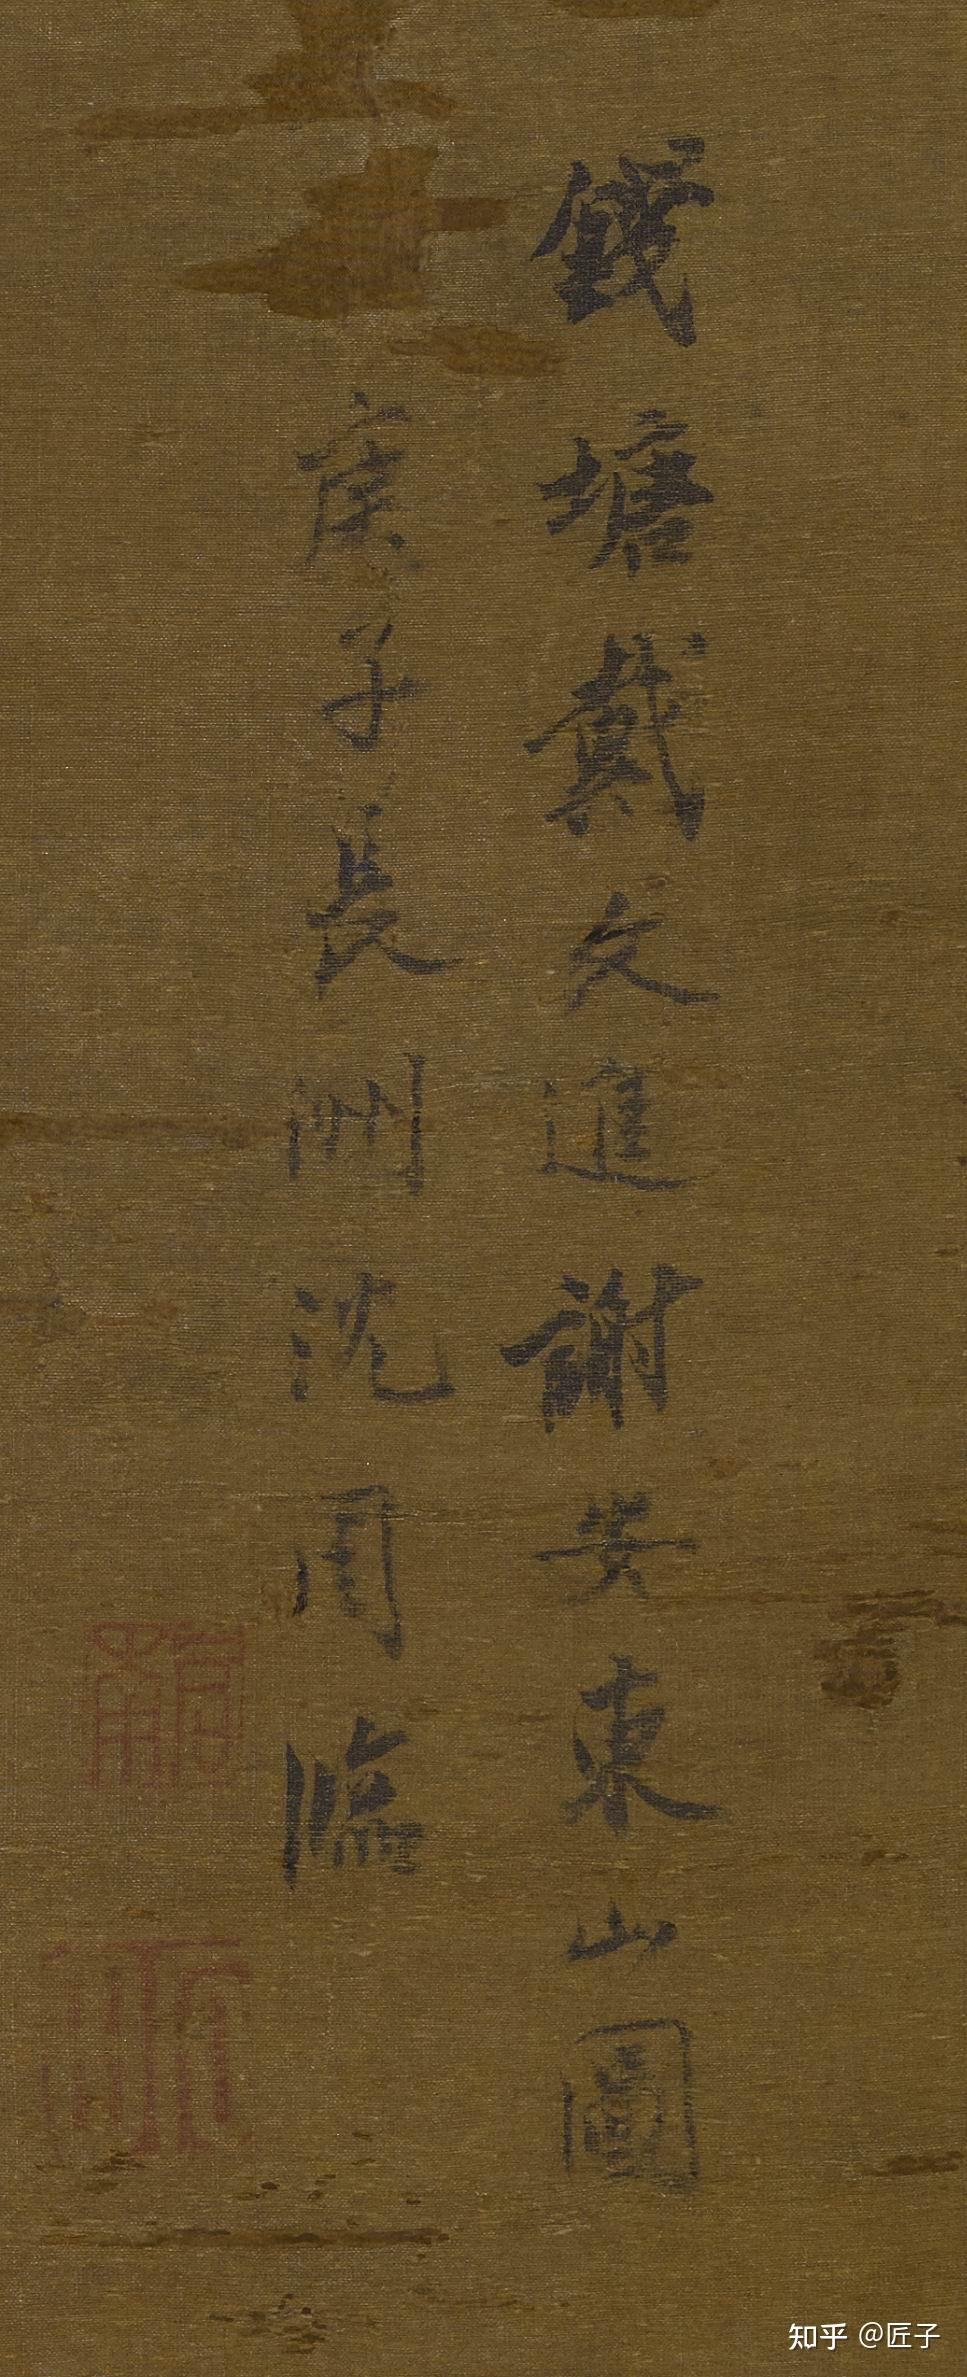 錢塘戴文進謝安東山圖
庚子長洲沈周臨
啟南
知乎 @匠子